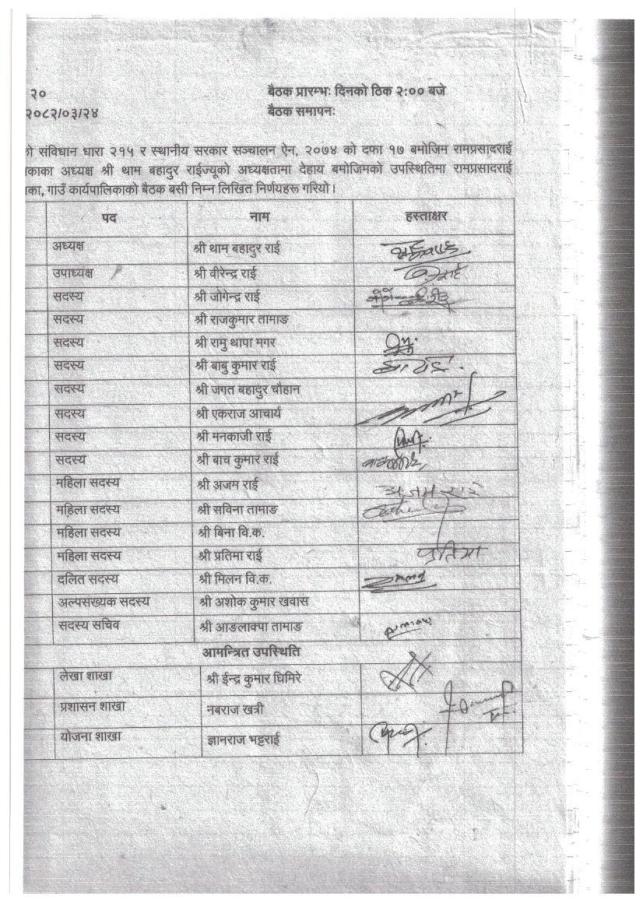 २० बैठक प्रारम्भः दिनको ठिक २:०० बजे
२०८२/०३/२४ बैठक समापनः
संविधान धारा २१५ र स्थानीय सरकार सञ्चालन ऐन, २०७४ को दफा १७ बमोजिम रामप्रसादराई
अध्यक्ष श्री थाम बहादुर राईज्यूको अध्यक्षतामा देहाय बमोजिमको उपस्थितिमा रामप्रसादराई
गाउँ कार्यपालिकाको बैठक बसी निम्न लिखित निर्णयहरू गरियो।
पद नाम हस्ताक्षर
अध्यक्ष श्री थाम बहादुर राई
उपाध्यक्ष श्री वीरेन्द्र राई
सदस्य श्री जोगेन्द्र राई
सदस्य श्री राजकुमार तामाङ
सदस्य श्री रामु थापा मगर
सदस्य श्री बाबु कुमार राई
सदस्य श्री जगत बहादुर चौहान
सदस्य श्री एकराज आचार्य
सदस्य श्री मनकाजी राई
सदस्य श्री बाच कुमार राई
महिला सदस्य श्री अजम राई अजम राई
महिला सदस्य श्री सविना तामाङ
महिला सदस्य श्री बिना वि.क.
महिला सदस्य श्री प्रतिमा राई प्रतिमा
दलित सदस्य श्री मिलन वि.क.
अल्पसख्यक सदस्य श्री अशोक कुमार खवास
सदस्य सचिव श्री आङलाक्पा तामाङ
आमन्त्रित उपस्थिति
लेखा शाखा श्री ईन्द्र कुमार घिमिरे
प्रशासन शाखा नबराज खत्री
योजना शाखा ज्ञानराज भट्टराई